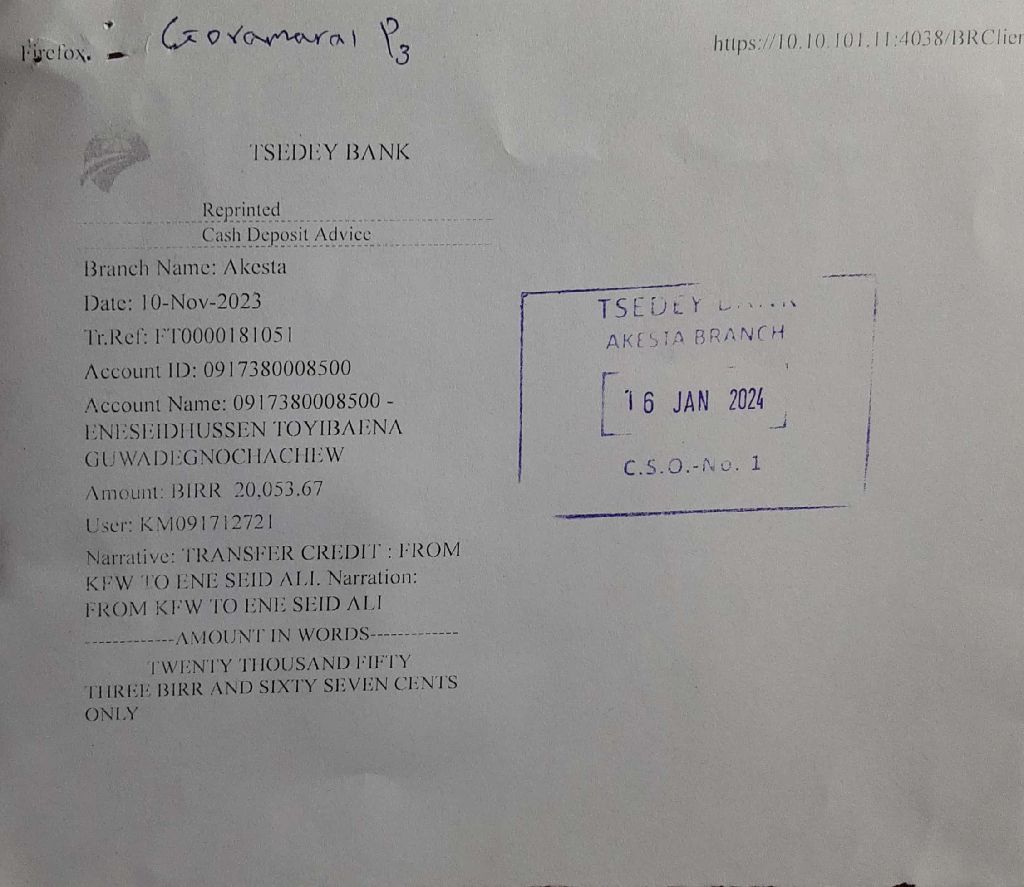 Firefox. Goramaral P3
https://10.10.101.11:4038/BRClien
TSEDEY BANK
Reprinted
Cash Deposit Advice
Branch Name: Akesta
Date: 10-Nov-2023
Tr.Ref: FT0000181051
Account ID: 0917380008500
Account Name: 0917380008500 -
ENESEIDHUSSEN TOYIBAENA
GUWADEGNOCHACHEW
Amount: BIRR 20,053.67
User: KM091712721
Narrative: TRANSFER CREDIT : FROM
KFW TO ENE SEID ALI. Narration:
FROM KFW TO ENE SEID ALI
-------------AMOUNT IN WORDS-------------
TWENTY THOUSAND FIFTY
THREE BIRR AND SIXTY SEVEN CENTS
ONLY
TSEDEY
AKESTA BRANCH
16 JAN 2024
C.S.O.-No. 1